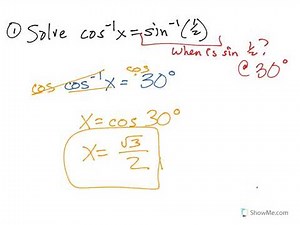 ① Solve cos⁻¹x = sin⁻¹(½)
When is sin ½?
@ 30°
cos cos⁻¹x = cos 30°
x = cos 30°
x = √3/2
ShowMe.com